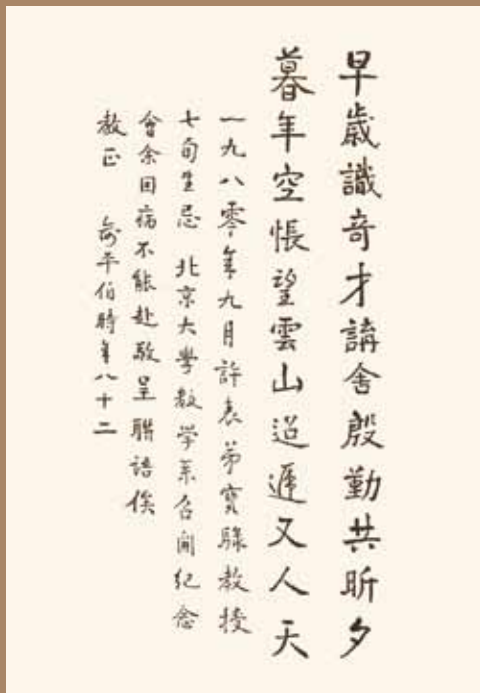 早歳識奇才講舍殷勤共昕夕
暮年空悵望雲山迢遞又人天
一九八零年九月許表弟寶騄教授
七旬生忌 北京大學数学系召開纪念
會余因病不能赴敬呈聯語俟
教正 俞平伯時年八十二